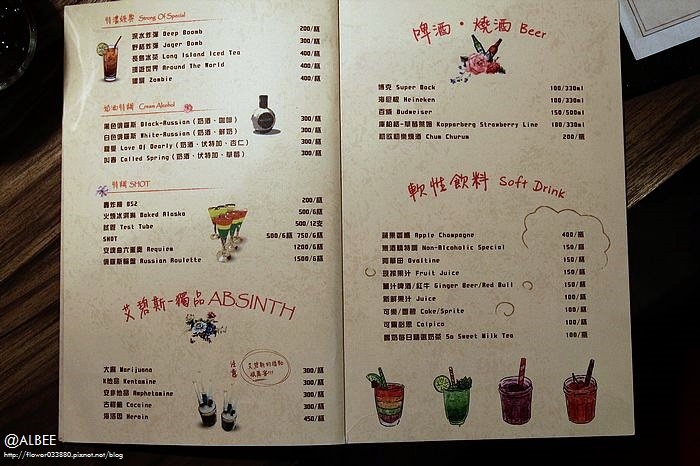 特濃經典 Strong Of Special
深水炸彈 Deep Boomb 200/杯
野格炸彈 Jager Bomb 300/杯
長島冰茶 Long Island Iced Tea 400/杯
環遊世界 Around The World 400/杯
殭屍 Zombie 400/杯
奶油特調 Cream Alcohol
黑色俄羅斯 Black-Russian (奶酒、咖啡) 300/杯
白色俄羅斯 White-Russian (奶酒、鮮奶) 300/杯
Love Of Dearly (奶酒、伏特加、杏仁) 300/杯
叫春 Called Spring (奶酒、伏特加、草莓) 300/杯
特調 SHOT
轟炸機 B52 200/杯
火燒冰淇淋 Baked Alaska 500/6杯
試管 Test Tube 500/12支
SHOT 500/6杯 750/6杯
安魂曲六重奏 Requiem 1200/6杯
俄羅斯輪盤 Russian Roulette 1500/6杯
艾碧斯-獨品 ABSINTH
注意
艾碧斯的酒勁
很厲害!!!
大麻 Marijuana 300/杯
K他命 Kentamine 300/杯
安非他命 Amphetamine 300/杯
古柯鹼 Cocaine 300/杯
海洛因 Heroin 450/杯
啤酒・燒酒 Beer
博克 Super Bock 100/330ml
海尼根 Heineken 100/330ml
百威 Budweiser 150/500ml
Kopparberg Strawberry Line 100/330ml
初飲初樂燒酒 Chum Churum 200/瓶
軟性飲料 Soft Drink
蘋果香檳 Apple Champagne 400/瓶
無酒精特調 Non-Alcoholic Special 150/杯
阿華田 Ovaltine 150/杯
現打果汁 Fruit Juice 150/杯
薑汁啤酒/紅牛 Ginger Beer/Red Bull 150/杯
新鮮果汁 Juice 100/杯
可樂/雪碧 Coke/Sprite 100/杯
可爾必思 Calpico 100/杯
每日精選奶茶 So Sweet Milk Tea 100/杯
@ALBEE
http://flower033880.pixnet.net/blog